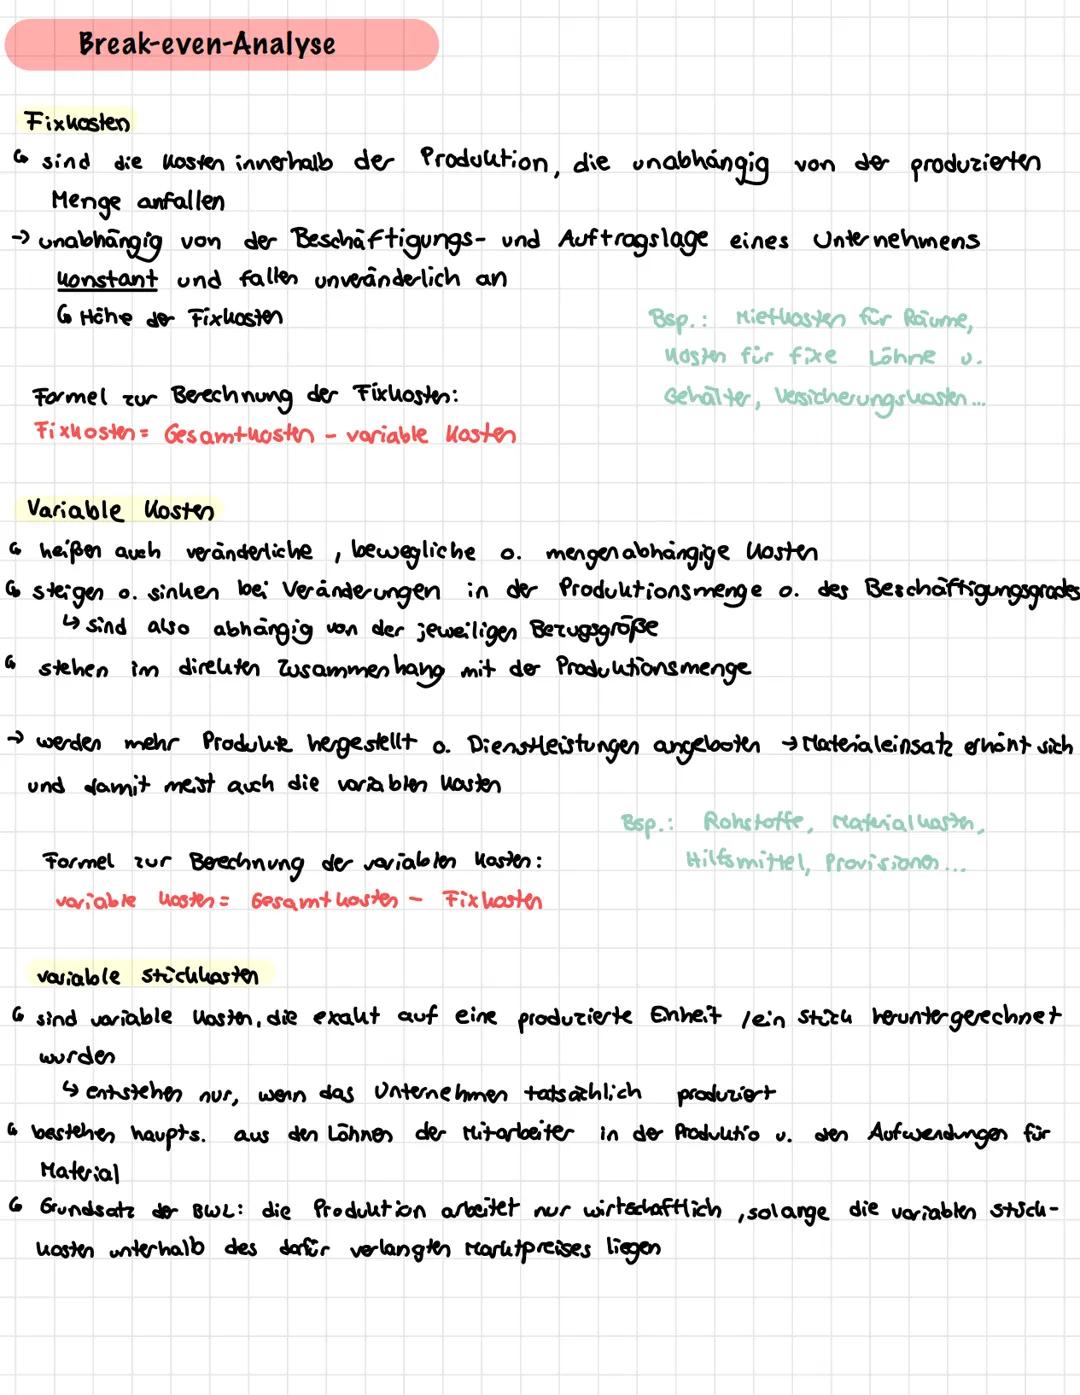 Break-even-Analyse
Fixkosten
↳ sind die Kosten innerhalb der Produktion, die unabhängig von der produzierten
Menge anfallen
→ unabhängig von der Beschäftigungs- und Auftragslage eines Unternehmens
konstant und fallen unveränderlich an
↳ Höhe der Fixkosten
Bsp.: Mietkosten für Räume,
Kosten für fixe Löhne u.
Gehälter, Versicherungskosten...
Formel zur Berechnung der Fixkosten:
Fixkosten = Gesamtkosten - variable Kosten
Variable Kosten
↳ heißen auch veränderliche, bewegliche o. mengenabhängige Kosten
↳ steigen o. sinken bei Veränderungen in der Produktionsmenge o. des Beschäftigungsgrades
↳ sind also abhängig von der jeweiligen Bezugsgröße
↳ stehen im direkten Zusammenhang mit der Produktionsmenge
→ werden mehr Produkte hergestellt o. Dienstleistungen angeboten → Materialeinsatz erhöht sich
und damit meist auch die variablen Kosten
Bsp.: Rohstoffe, Materialkosten,
Hilfsmittel, Provisionen...
Formel zur Berechnung der variablen Kosten:
variable Kosten = Gesamtkosten - Fixkosten
variable Stückkosten
↳ sind variable Kosten, die exakt auf eine produzierte Einheit / ein Stück heruntergerechnet
wurden
↳ entstehen nur, wenn das Unternehmen tatsächlich produziert
↳ bestehen haupts. aus den Löhnen der Mitarbeiter in der Produktio u. den Aufwendungen für
Material
↳ Grundsatz der BWL: die Produktion arbeitet nur wirtschaftlich, solange die variablen Stück-
kosten unterhalb des dafür verlangten Marktpreises liegen